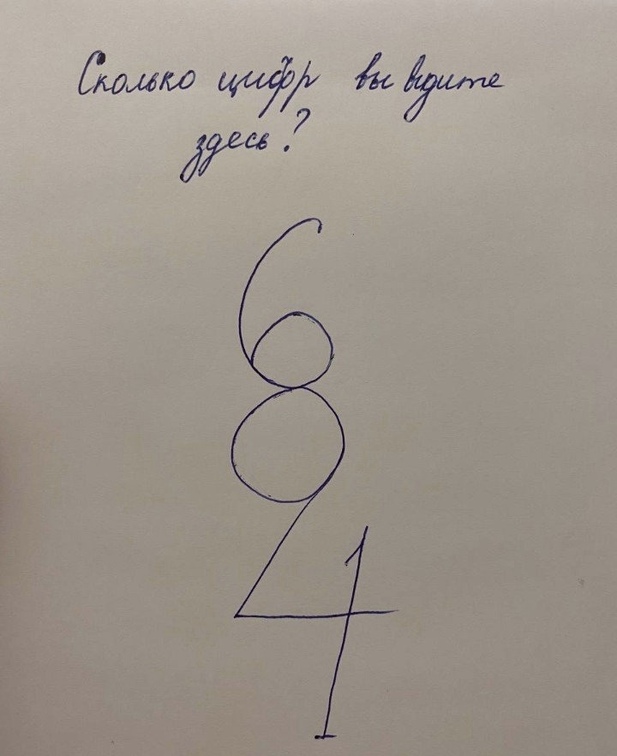 Сколько цифр вы видите
здесь?
6
8
4